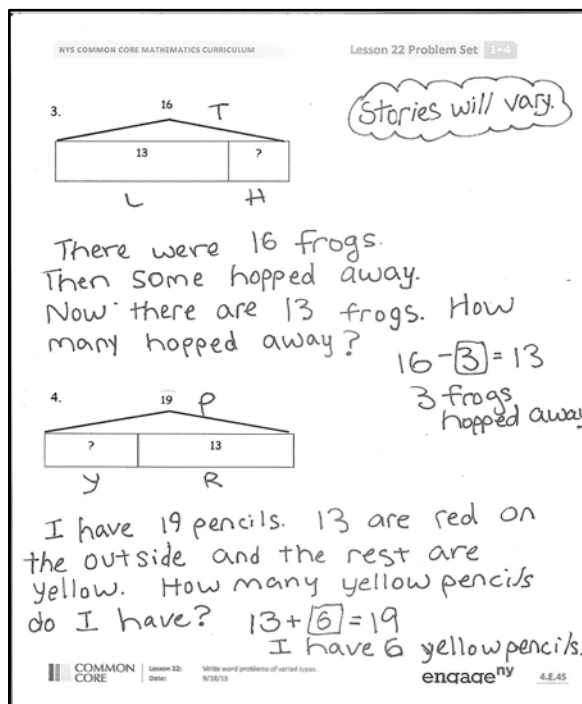 NYS COMMON CORE MATHEMATICS CURRICULUM
Lesson 22 Problem Set 1•4
3.
16 T
Stories will vary.
13 ?
L H
There were 16 frogs.
Then some hopped away.
Now there are 13 frogs. How
many hopped away?
16 - 3 = 13
3 frogs
hopped away
4.
19 P
? 13
Y R
I have 19 pencils. 13 are red on
the outside and the rest are
yellow. How many yellow pencils
do I have? 13 + 6 = 19
I have 6 yellow pencils.
COMMON
CORE
Lesson 22: Write word problems of varied types.
Date: 9/18/13
engageny
4.E.45